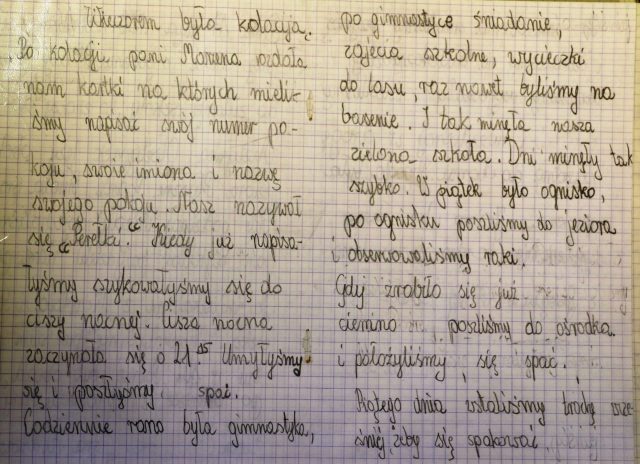 Wieczorem była kolacja.
Po kolacji pani Marzena rozdała
nam kartki na których mieli-
śmy napisać swój numer po-
koju, swoje imiona i nazwę
swojego pokoju. Nasz nazywał
się "Perełki". Kiedy już napisa-
łyśmy szykowałyśmy się do
ciszy nocnej. Cisza nocna
zaczynała się o 21. Umyłyśmy
się i poszłyśmy spać.
Codziennie rano była gimnastyka,
po gimnastyce śniadanie,
zajęcia szkolne, wycieczki
do lasu, raz nawet byliśmy na
basenie. I tak minęła nasza
zielona szkoła. Dni minęły tak
szybko. W piątek było ognisko,
po ognisku poszliśmy do jeziora
i obserwowaliśmy raki.
Gdy zrobiło się już
ciemno poszliśmy do ośrodka
i położyliśmy się spać.
Piątego dnia wstaliśmy trochę wcze-
śniej, żeby się spakować.